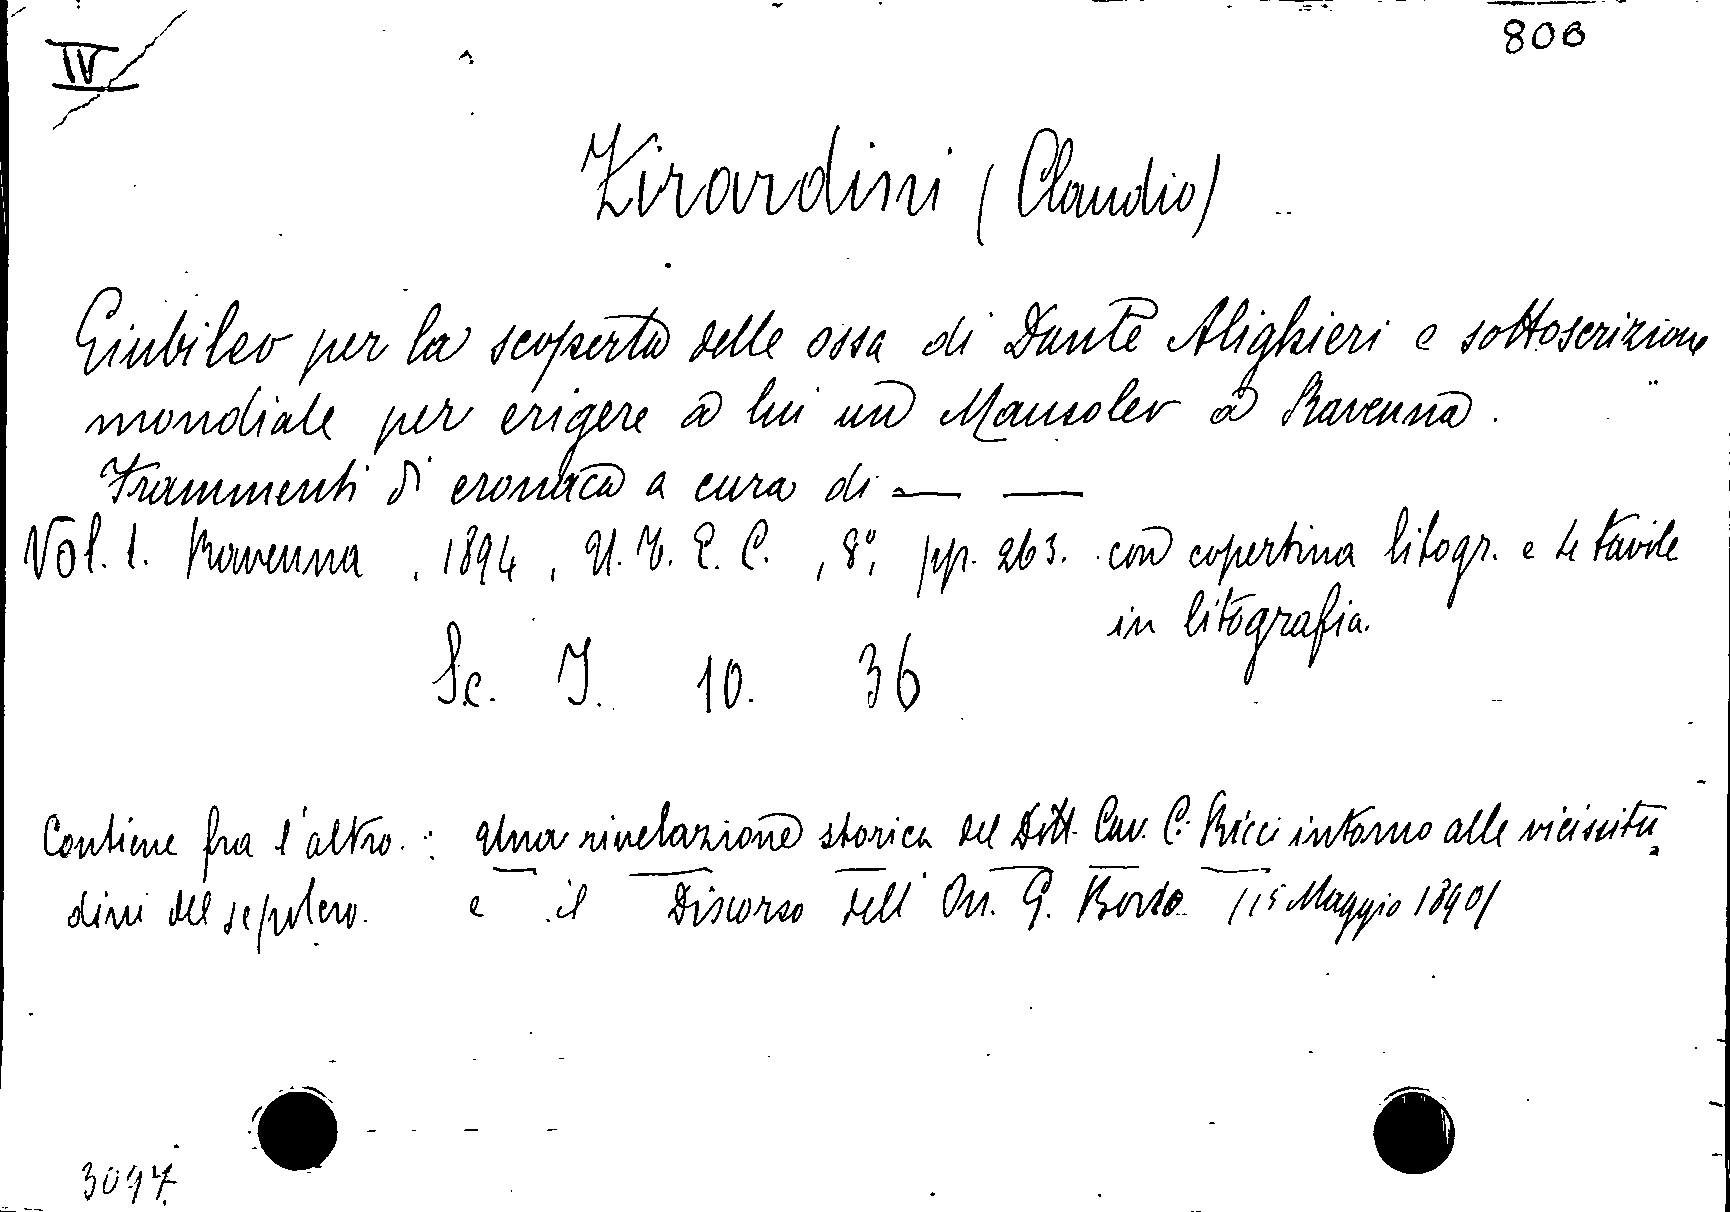 IV
806
Zirardini (Claudio)
Giubileo per la scoperta delle ossa di Dante Alighieri e sottoscrizione
mondiale per erigere a lui un Mausoleo a Ravenna.
Frammenti di cronaca a cura di — —
Vol. 1. Ravenna, 1894, U.T.E.C., 8°, pp. 263. con copertina litogr. e tavole
in litografia.
Sc. I. 10. 36
Contiene fra l'altro: Una rivelazione storica del Dott. Cav. C. Ricci intorno alle vicissitu
dini del sepolcro. e il Discorso dell' On. G. Bovio (15 Maggio 1890)
3097